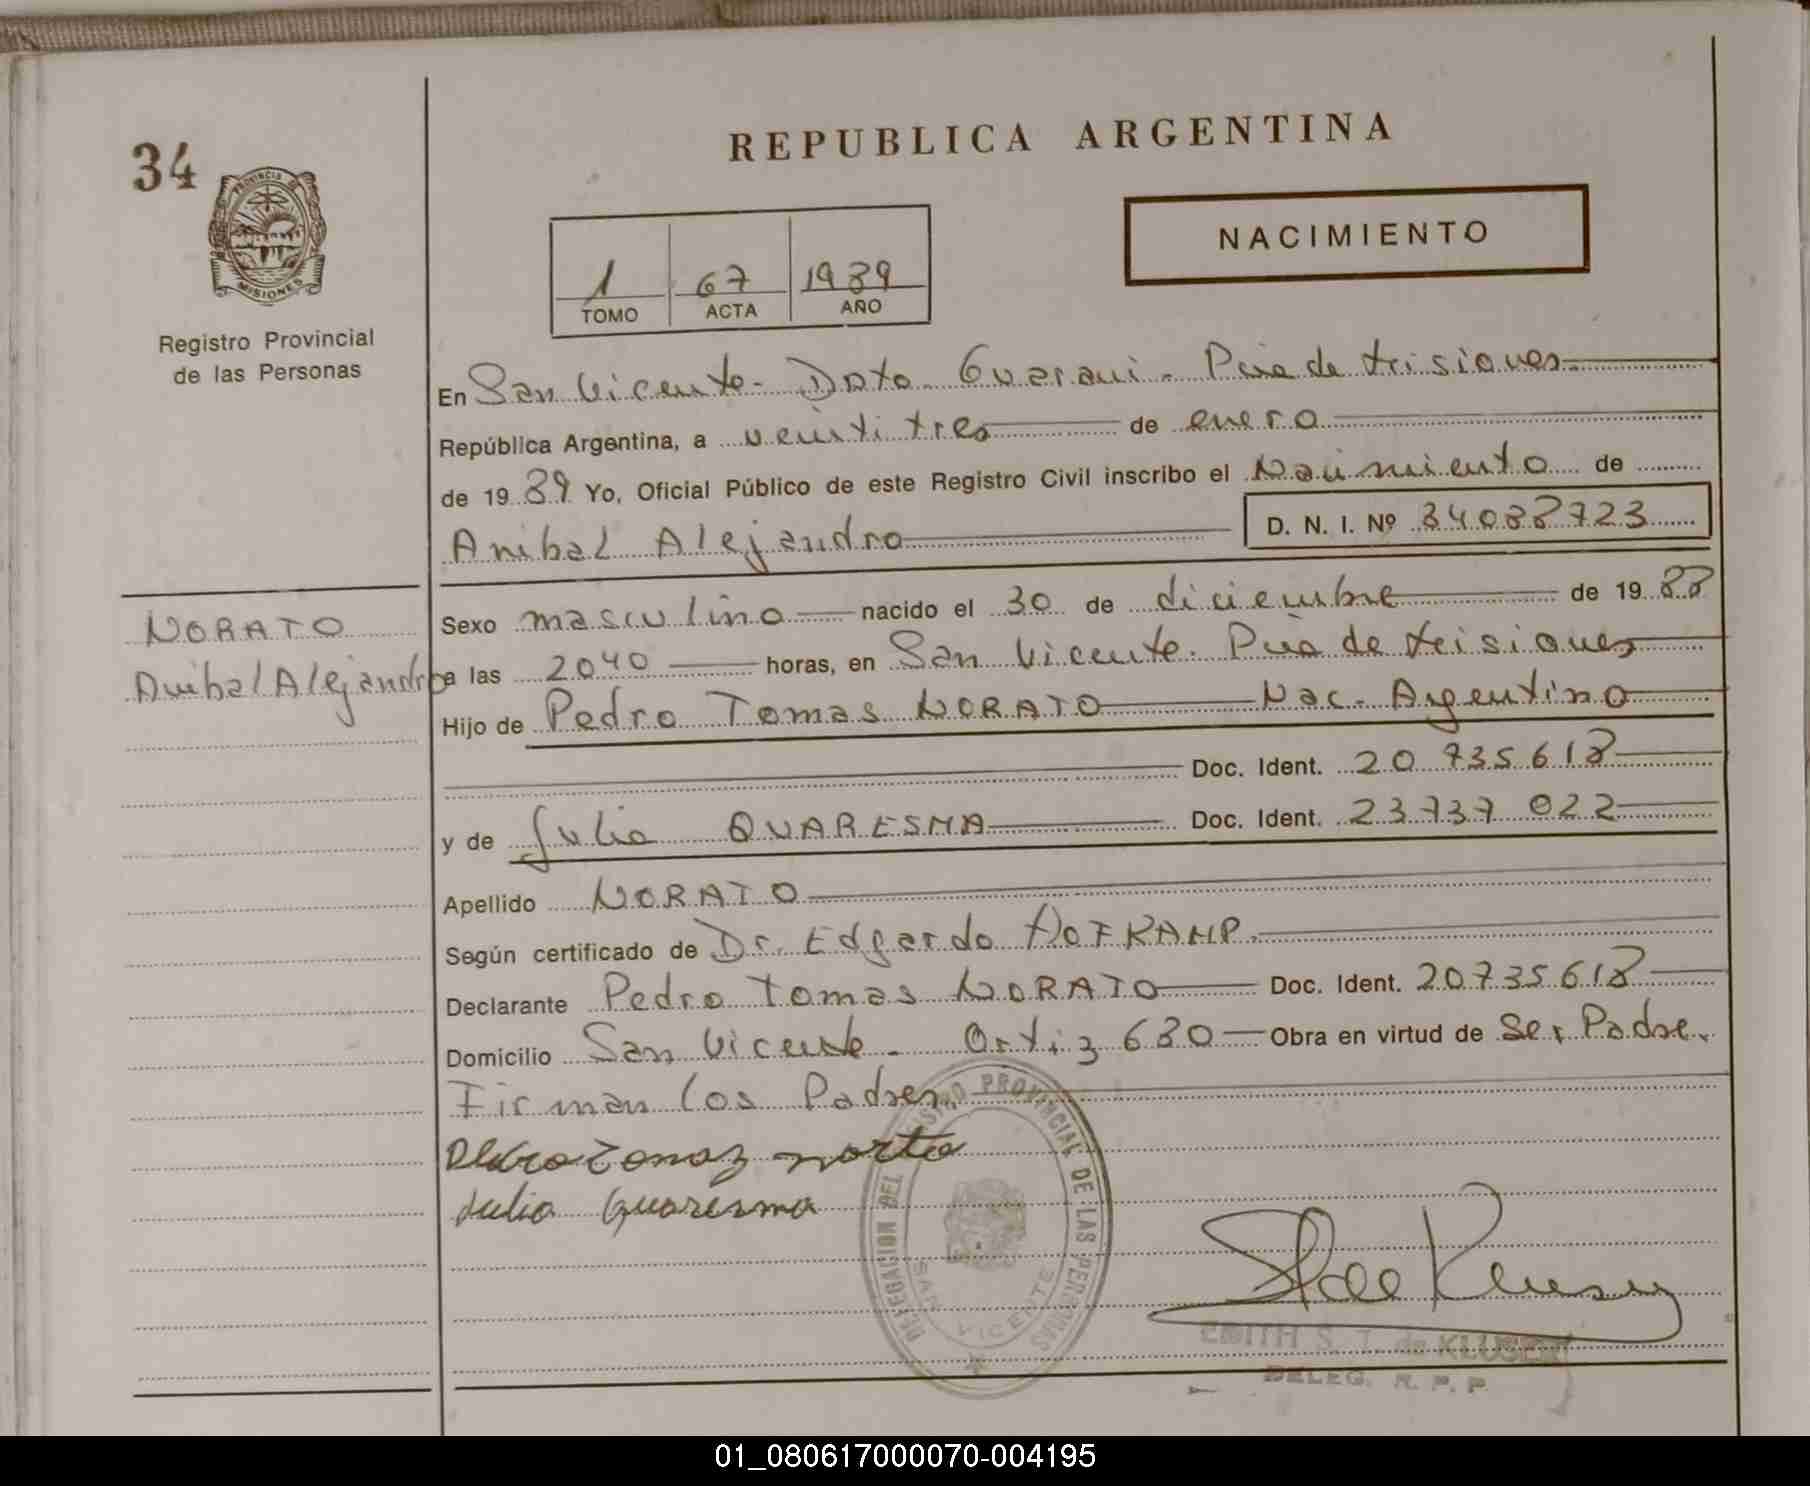 34
PROVINCIA DE
MISIONES
Registro Provincial
de las Personas
REPUBLICA ARGENTINA
NACIMIENTO
1 67 1989
TOMO ACTA AÑO
En San Vicente - Dpto. Guarani - Pcia de Misiones
República Argentina, a veintitres de enero
de 19 89 Yo, Oficial Público de este Registro Civil inscribo el Nacimiento de
Anibal Alejandro D. N. I. Nº 34088723
NORATO
Anibal Alejandro
Sexo masculino nacido el 30 de diciembre de 19 88
a las 2040 horas, en San Vicente. Pcia de Misiones
Hijo de Pedro Tomas NORATO Nac. Argentino
Doc. Ident. 20 735 618
y de Julia QUARESMA Doc. Ident. 23737 022
Apellido NORATO
Según certificado de Dr. Edgardo HOFKAMP.
Declarante Pedro Tomas NORATO Doc. Ident. 20735618
Domicilio San Vicente - Ortiz 680 Obra en virtud de Ser Padre.
Firman los Padres.
Pedro Tomaz norto
Julia Quaresma
DELEGACION DEL REGISTRO PROVINCIAL DE LAS PERSONAS
SAN VICENTE
EDITH S. T. de KLUSENER
DELEG. R. P. P.
01_080617000070-004195